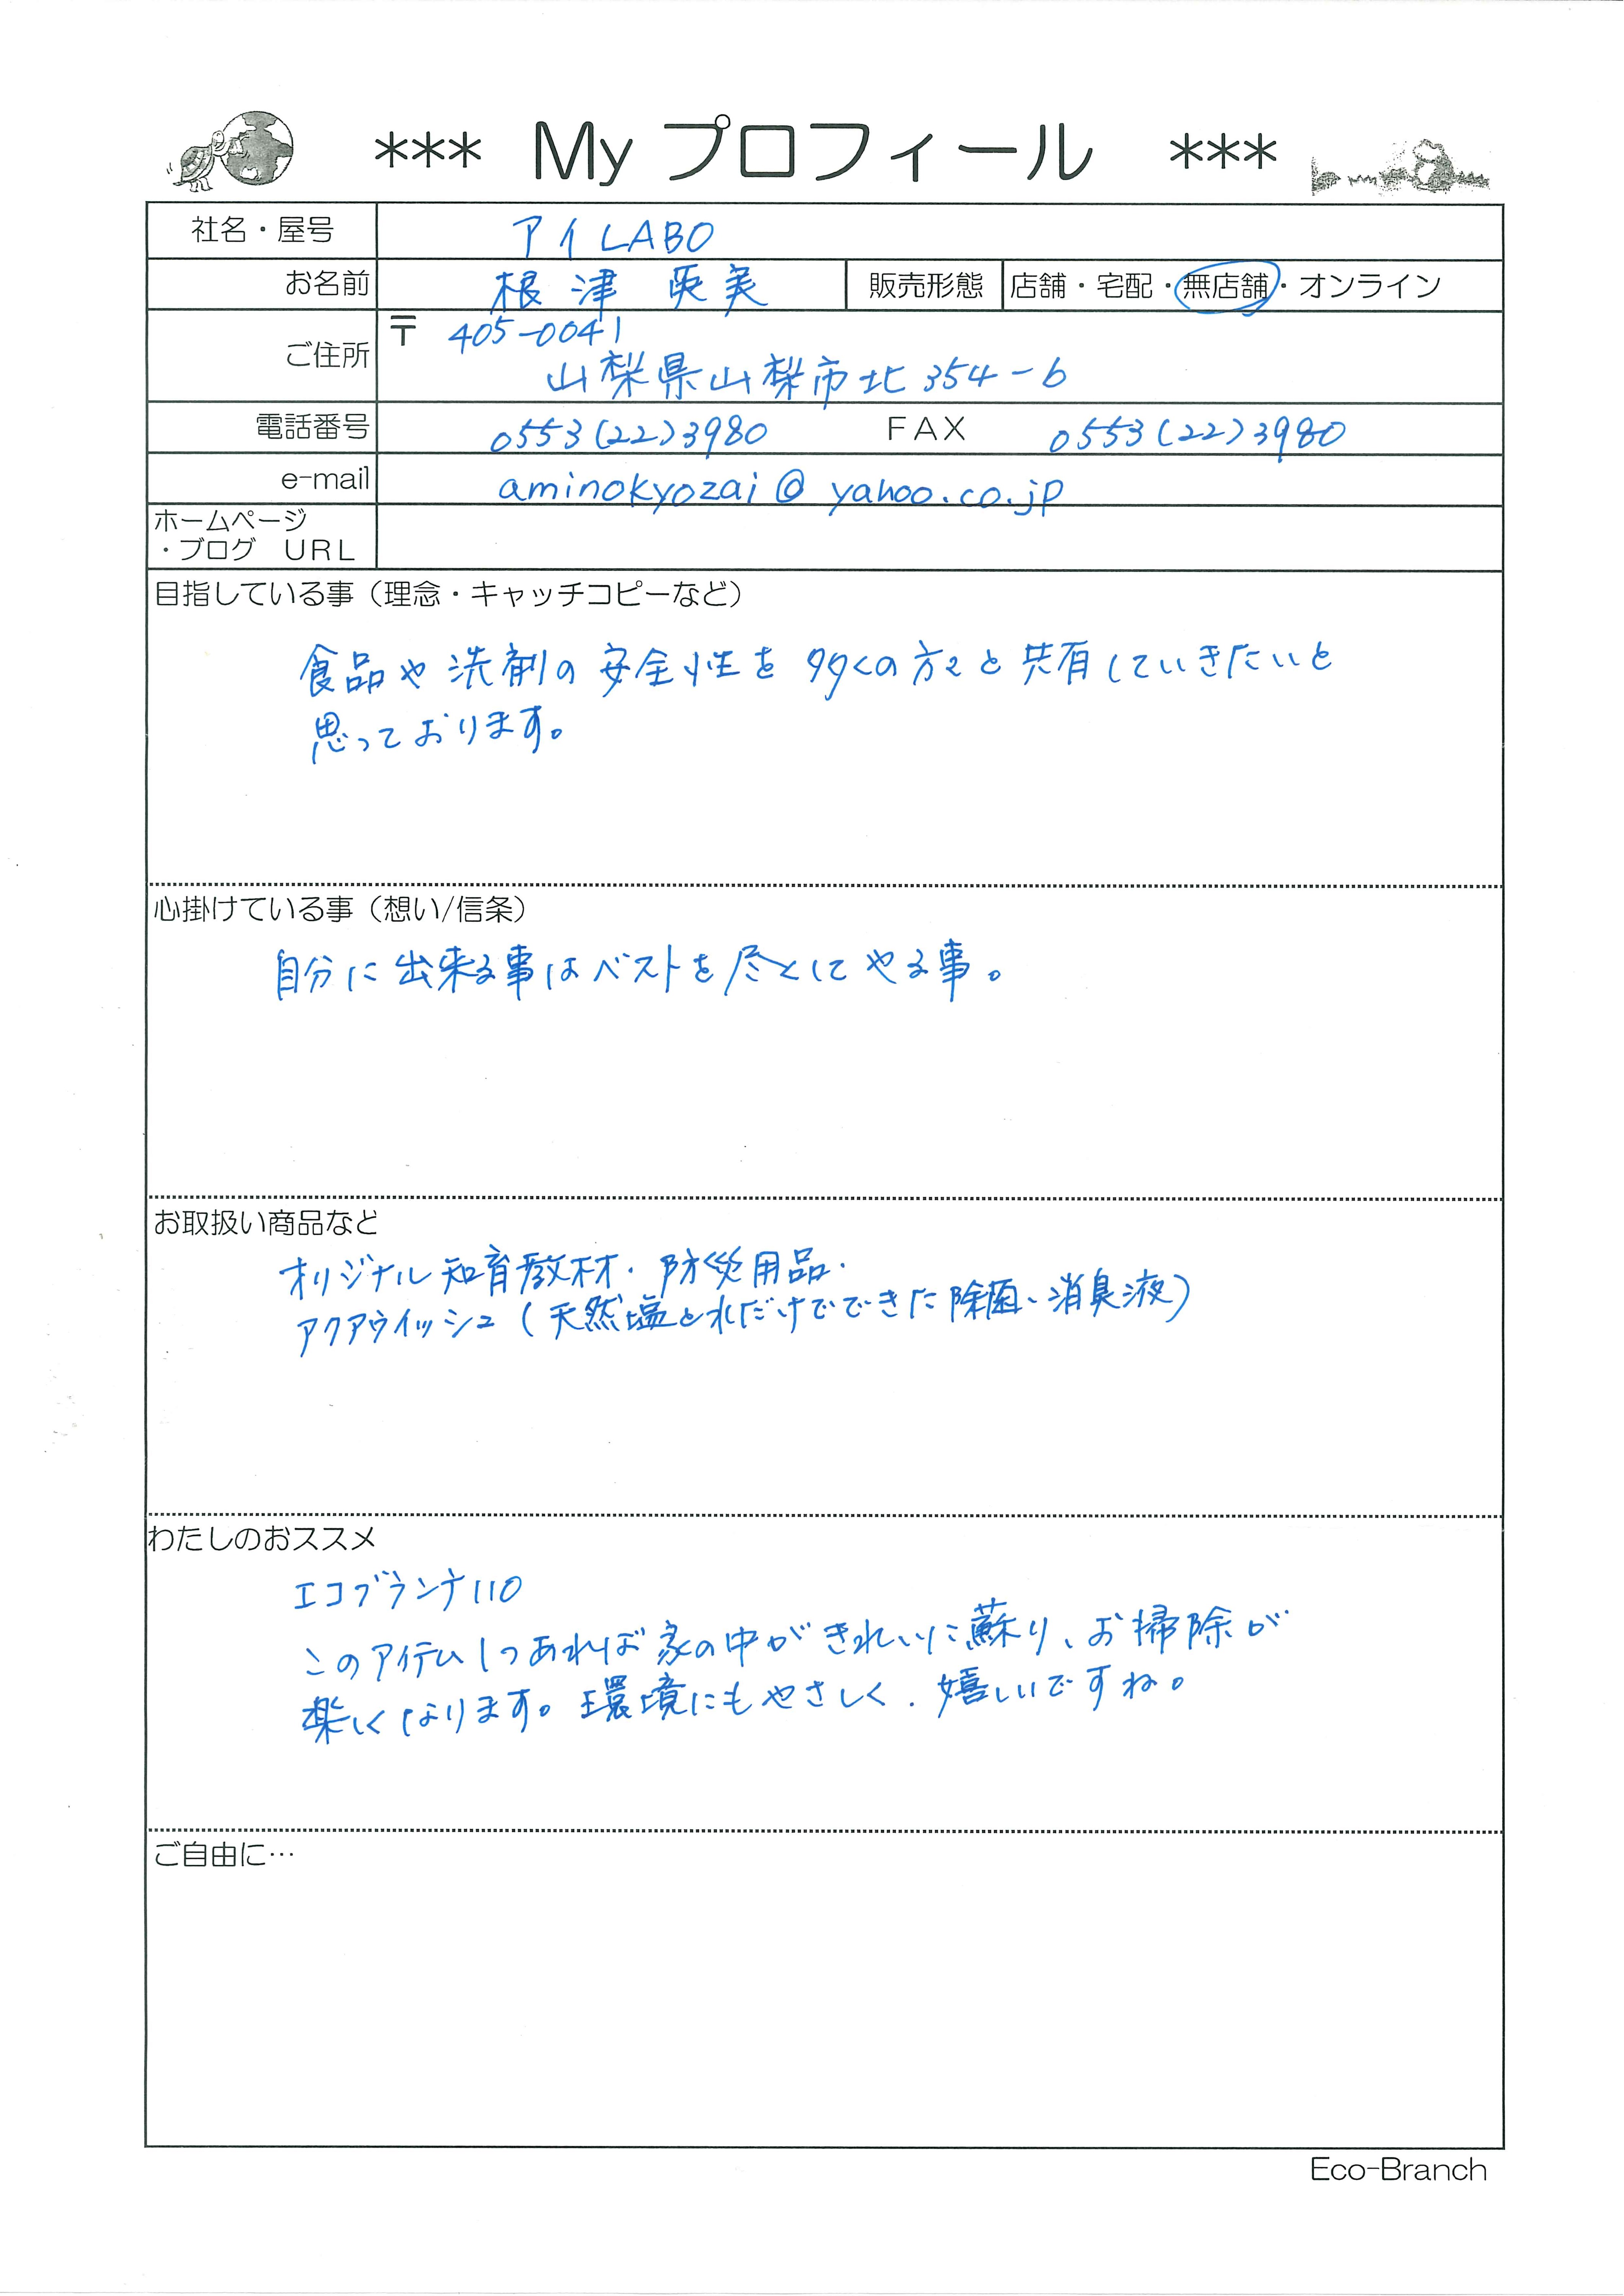 *** My プロフィール ***
社名・屋号 アイLABO
お名前 根津 亜実 販売形態 店舗・宅配・無店舗・オンライン
ご住所 〒 405-0041
山梨県山梨市北354-6
電話番号 0553(22)3980 FAX 0553(22)3980
e-mail aminokyozai@yahoo.co.jp
ホームページ
・ブログ URL
目指している事（理念・キャッチコピーなど）
食品や洗剤の安全性を多くの方々と共有していきたいと
思っております。
心掛けている事（想い/信条）
自分に出来る事はベストを尽くしてやる事。
お取扱い商品など
オリジナル知育教材・防災用品・
アクアウィッシュ(天然塩と水だけでできた除菌、消臭液)
わたしのおススメ
エコブランチ110
このアイテム1つあれば家の中がきれいに蘇り、お掃除が
楽しくなります。環境にもやさしく、嬉しいですね。
ご自由に…
Eco-Branch